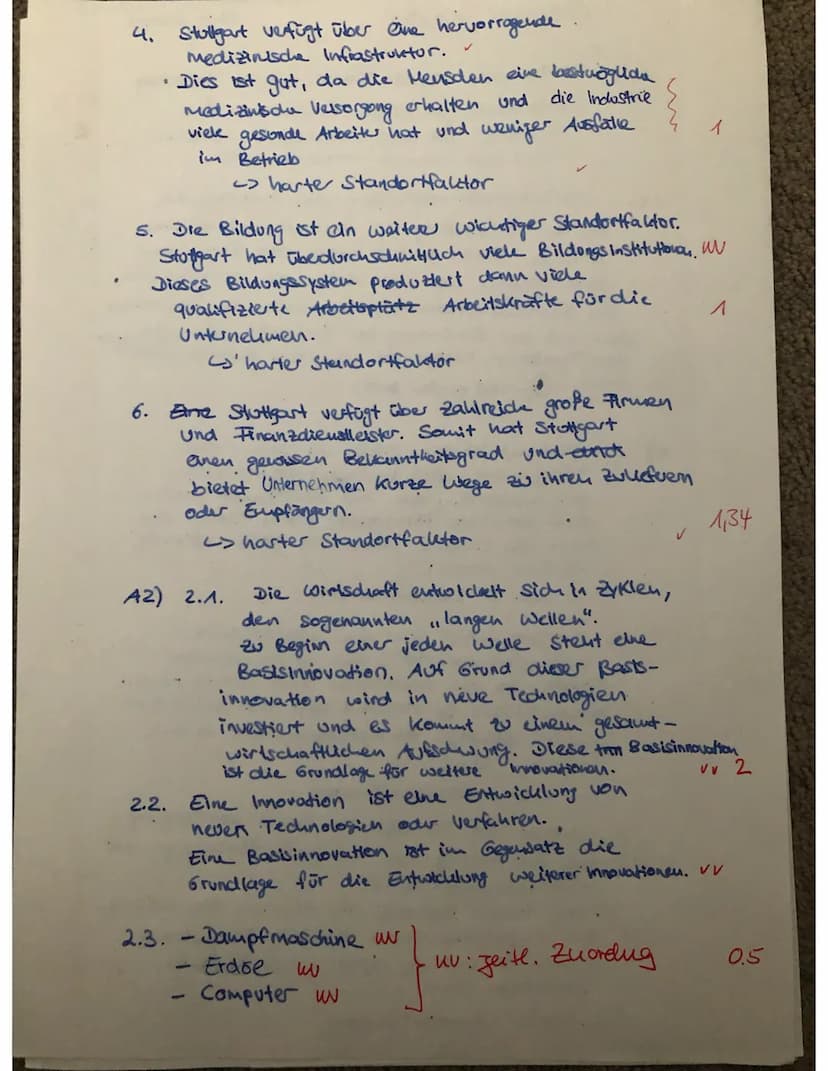 4. Stuttgart verfügt über eine hervorragende
medizinische Infrastruktur. ✓
• Dies ist gut, da die Menschen eine bestmögliche
medizinische Versorgung erhalten und die Industrie
viele gesunde Arbeiter hat und weniger Ausfälle 1
im Betrieb
↳ harter Standortfaktor ✓
5. Die Bildung ist ein weiterer wichtiger Standortfaktor.
Stuttgart hat überdurchschnittlich viele Bildungsinstitutionen. uv
Dieses Bildungssystem produziert dann viele
qualifizierte Arbeitsplätz Arbeitskräfte für die 1
Unternehmen.
↳ harter Standortfaktor
6. Eine Stuttgart verfügt über zahlreiche große Firmen
und Finanzdienstleister. Somit hat Stuttgart
einen gewissen Bekanntheitsgrad und
bietet Unternehmen kurze Wege zu ihren Zuliefern
oder Empfängern. 1,34
↳ harter Standortfaktor ✓
A2) 2.1. Die Wirtschaft entwickelt sich in Zyklen,
den sogenannten „langen Wellen“.
Zu Beginn einer jeden Welle steht eine
Basisinnovation. Auf Grund dieser Basis-
innovation wird in neue Technologien
investiert und es kommt zu einem gesamt-
wirtschaftlichen Aufschwung. Diese Basisinnovation
ist die Grundlage für weitere Innovationen. ✓✓ 2
2.2. Eine Innovation ist eine Entwicklung von
neuen Technologien oder Verfahren.
Eine Basisinnovation ist im Gegensatz die
Grundlage für die Entwicklung weiterer Innovationen. ✓✓
2.3. - Dampfmaschine uv
- Erdöe uv uv: zeitl. Zuordng 0.5
- Computer uv